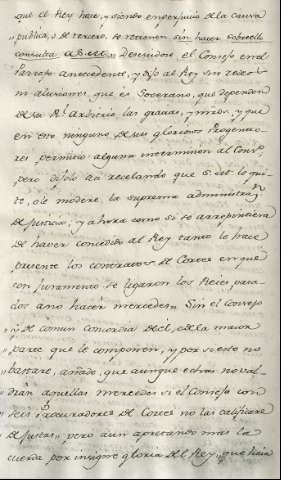 que el Rey hace, y siendo en perjuicio de la causa
publica, o de tercero, se retienen sin hacer sobre ello
consulta a S.M. Descuidose el Consejo en el
Parrafo antecedente, y dijo al Rey sin rebozo
ni alusiones que es Soberano, que dependen
de su Rl. arbitrio las gracias, y mrds. y que
en esto ninguno de sus gloriosos Progenito
res permitio alguna intermision al Consejo
pero dijolo aá rezelando que S.M. lo qui
te, o le modere, la suprema administrazn.
de Justicia, y ahora como si se arrepintiera
de haver concedido al Rey tanto le hace
presente los contractos de Cortes en que
con juramento se ligaron los Reies para
dos ano hacer mercedes. Sin el Consejo
y de comun concordia del, o de la maior
parte que le componen, y por si esto no
bastare, añade, que aunque echas no val
drán aquellas mercedes si el Consejo con
deis Procuradores de Cortes no las calificare
de justas, pero aun apretando mas la
cuerda por insigne gloria del Rey, que hacia